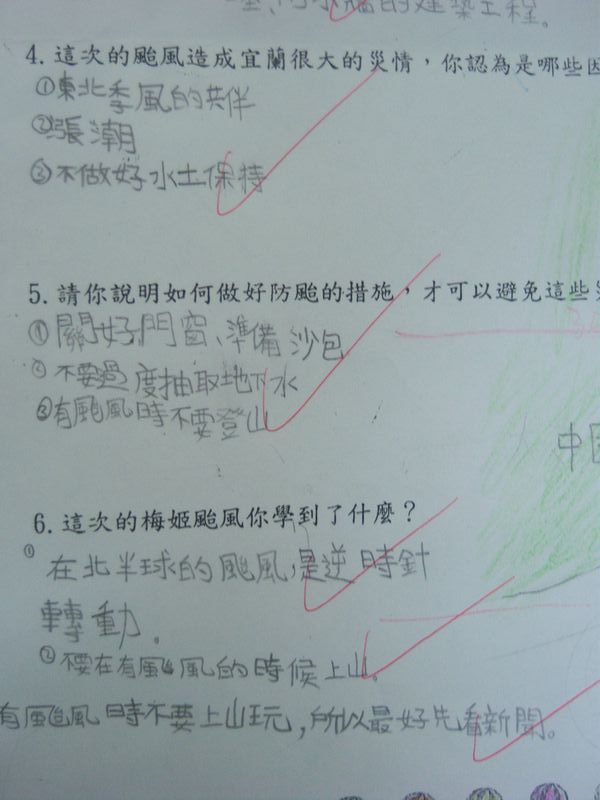 的建築工程。
4. 這次的颱風造成宜蘭很大的災情，你認為是哪些因
①東北季風的共伴
②張潮
③不做好水土保持
5. 請你說明如何做好防颱的措施，才可以避免這些
①關好門窗、準備沙包
②不要過度抽取地下水
③有颱風時不要登山
中國
6. 這次的梅姬颱風你學到了什麼？
①在北半球的颱風，是逆時針
轉動。
②不要在有颱風的時候上山。
有颱風時不要上山玩，所以最好先看新聞。